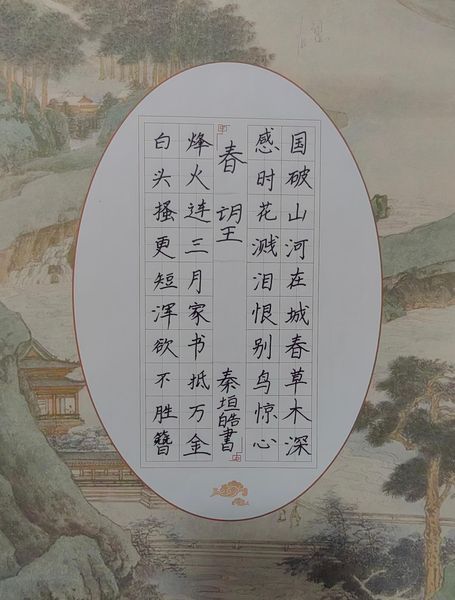 国破山河在城春草木深
感时花溅泪恨别鸟惊心
春望
秦垣皓書
烽火连三月家书抵万金
白头搔更短浑欲不胜簪